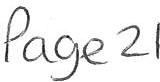 Page 21